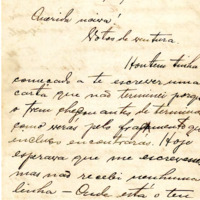 Querida noiva!
Votos de ventura.
Hontem tinha
começado a te escrever uma
carta que não terminei porque
o trem chegou antes de terminar
como verás pelo fragmento que
incluso encontrarás. Hoje
esperava que me escrevesses
mas não recebi nenhuma
linha — Onde está o teu